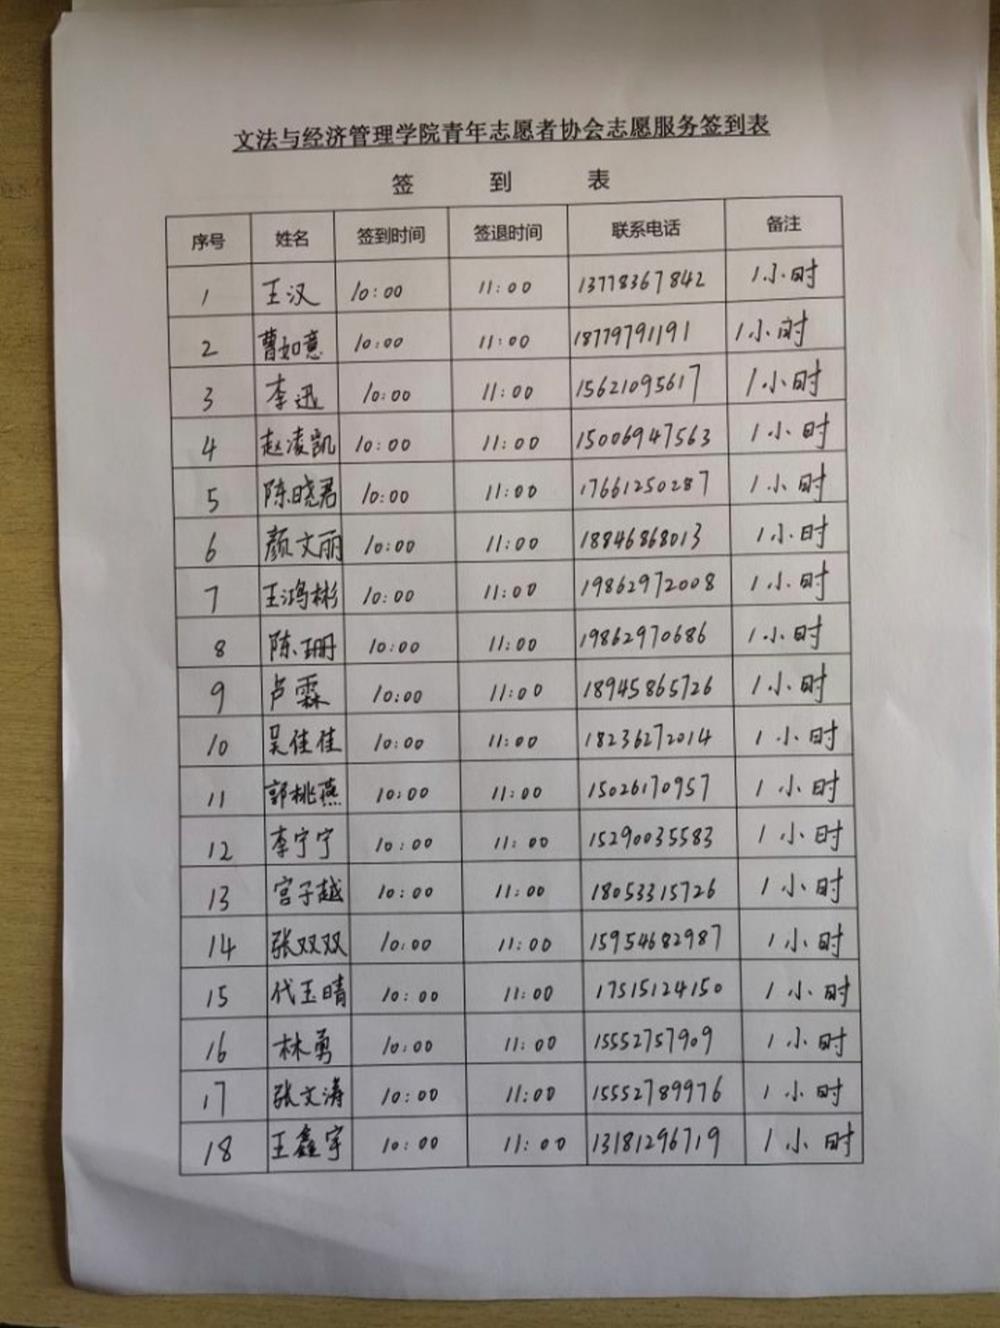 文法与经济管理学院青年志愿者协会志愿服务签到表
签 到 表
序号 姓名 签到时间 签退时间 联系电话 备注
1 王汉 10:00 11:00 13778367842 1小时
2 曹如意 10:00 11:00 18779791191 1小时
3 李迅 10:00 11:00 15621095617 1小时
4 赵凌凯 10:00 11:00 15006947563 1小时
5 陈晓君 10:00 11:00 17661250287 1小时
6 颜文丽 10:00 11:00 18846868013 1小时
7 王鸿彬 10:00 11:00 19862972008 1小时
8 陈珊 10:00 11:00 19862970686 1小时
9 卢霖 10:00 11:00 18945865726 1小时
10 吴佳佳 10:00 11:00 18236272014 1小时
11 郭桃燕 10:00 11:00 15026170957 1小时
12 李宁宁 10:00 11:00 15290035583 1小时
13 宫子越 10:00 11:00 18053315726 1小时
14 张双双 10:00 11:00 15954682987 1小时
15 代玉晴 10:00 11:00 17515124150 1小时
16 林勇 10:00 11:00 15552757909 1小时
17 张文涛 10:00 11:00 15552789976 1小时
18 王鑫宇 10:00 11:00 13181296719 1小时